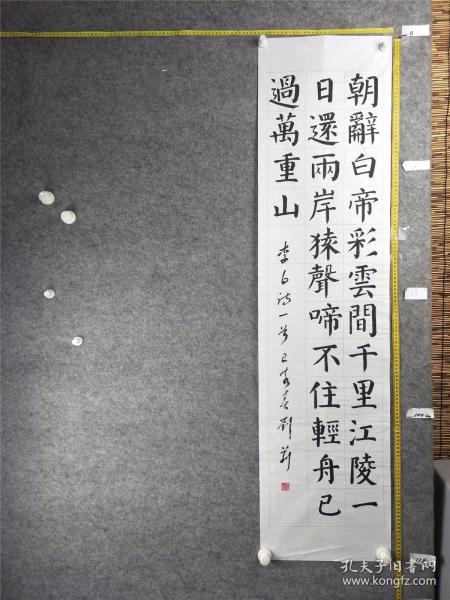 朝辭白帝彩雲間千里江陵一
日還兩岸猿聲啼不住輕舟已
過萬重山
李白詩一首 己亥春 劉莉
孔夫子旧书网
www.kongfz.com